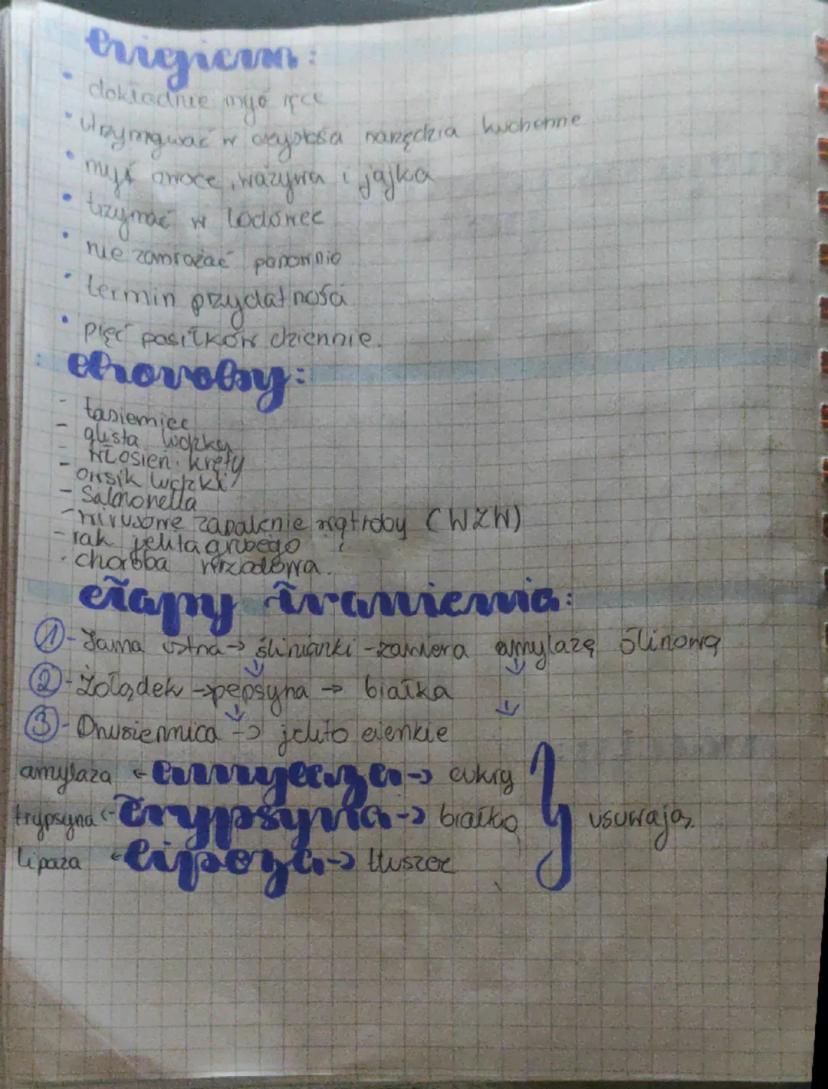 higiena:
• dokładnie myć ręce
• utrzymywać w czystości narzędzia kuchenne
• myć owoce, warzywa i jajka
• trzymać w lodówce
• nie zamrażać ponownie
• termin przydatności
• pięć posiłków dziennie.
choroby:
- tasiemiec
- glista ludzka
- włosień kręty
- owsik ludzki
- Salmonella
- wirusowe zapalenie wątroby (WZW)
- rak jelita grubego
- choroba wrzodowa.
etapy trawienia:
① - Jama ustna → ślinianki - zawiera amylazę ślinową
② - Żołądek → pepsyna → białka
③ - Dwuniennica → jelito cienkie
amylaza ← amylaza → cukry
trypsyna ← trypsyna → białko } usuwają.
lipaza ← lipaza → tłuszcz